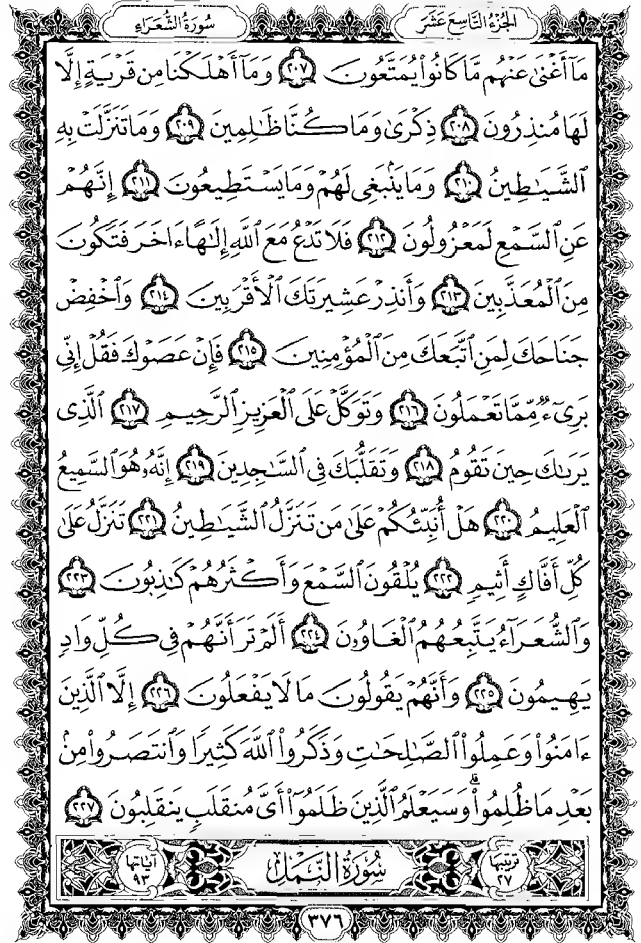 الجزء التاسع عشر
سورة الشعراء
مَآ أَغْنَىٰ عَنْهُم مَّا كَانُوا۟ يُمَتَّعُونَ ٢٠٧ وَمَآ أَهْلَكْنَا مِن قَرْيَةٍ إِلَّا
لَهَا مُنذِرُونَ ٢٠٨ ذِكْرَىٰ وَمَا كُنَّا ظَٰلِمِينَ ٢٠٩ وَمَا تَنَزَّلَتْ بِهِ
ٱلشَّيَٰطِينُ ٢١٠ وَمَا يَنۢبَغِى لَهُمْ وَمَا يَسْتَطِيعُونَ ٢١١ إِنَّهُمْ
عَنِ ٱلسَّمْعِ لَمَعْزُولُونَ ٢١٢ فَلَا تَدْعُ مَعَ ٱللَّهِ إِلَٰهًا ءَاخَرَ فَتَكُونَ
مِنَ ٱلْمُعَذَّبِينَ ٢١٣ وَأَنذِرْ عَشِيرَتَكَ ٱلْأَقْرَبِينَ ٢١٤ وَٱخْفِضْ
جَنَاحَكَ لِمَنِ ٱتَّبَعَكَ مِنَ ٱلْمُؤْمِنِينَ ٢١٥ فَإِنْ عَصَوْكَ فَقُلْ إِنِّى
بَرِىٓءٌ مِّمَّا تَعْمَلُونَ ٢١٦ وَتَوَكَّلْ عَلَى ٱلْعَزِيزِ ٱلرَّحِيمِ ٢١٧ ٱلَّذِى
يَرَىٰكَ حِينَ تَقُومُ ٢١٨ وَتَقَلُّبَكَ فِى ٱلسَّٰجِدِينَ ٢١٩ إِنَّهُۥ هُوَ ٱلسَّمِيعُ
ٱلْعَلِيمُ ٢٢٠ هَلْ أُنَبِّئُكُمْ عَلَىٰ مَن تَنَزَّلُ ٱلشَّيَٰطِينُ ٢٢١ تَنَزَّلُ عَلَىٰ
كُلِّ أَفَّاكٍ أَثِيمٍ ٢٢٢ يُلْقُونَ ٱلسَّمْعَ وَأَكْثَرُهُمْ كَٰذِبُونَ ٢٢٣
وَٱلشُّعَرَآءُ يَتَّبِعُهُمُ ٱلْغَاوُۥنَ ٢٢٤ أَلَمْ تَرَ أَنَّهُمْ فِى كُلِّ وَادٍ
يَهِيمُونَ ٢٢٥ وَأَنَّهُمْ يَقُولُونَ مَا لَا يَفْعَلُونَ ٢٢٦ إِلَّا ٱلَّذِينَ
ءَامَنُوا۟ وَعَمِلُوا۟ ٱلصَّٰلِحَٰتِ وَذَكَرُوا۟ ٱللَّهَ كَثِيرًا وَٱنتَصَرُوا۟ مِنۢ
بَعْدِ مَا ظُلِمُوا۟ ۗ وَسَيَعْلَمُ ٱلَّذِينَ ظَلَمُوٓا۟ أَىَّ مُنقَلَبٍ يَنقَلِبُونَ ٢٢٧
ترتيبها ٢٧
سُورَةُ النَّمْلِ
آياتها ٩٣
٣٧٦